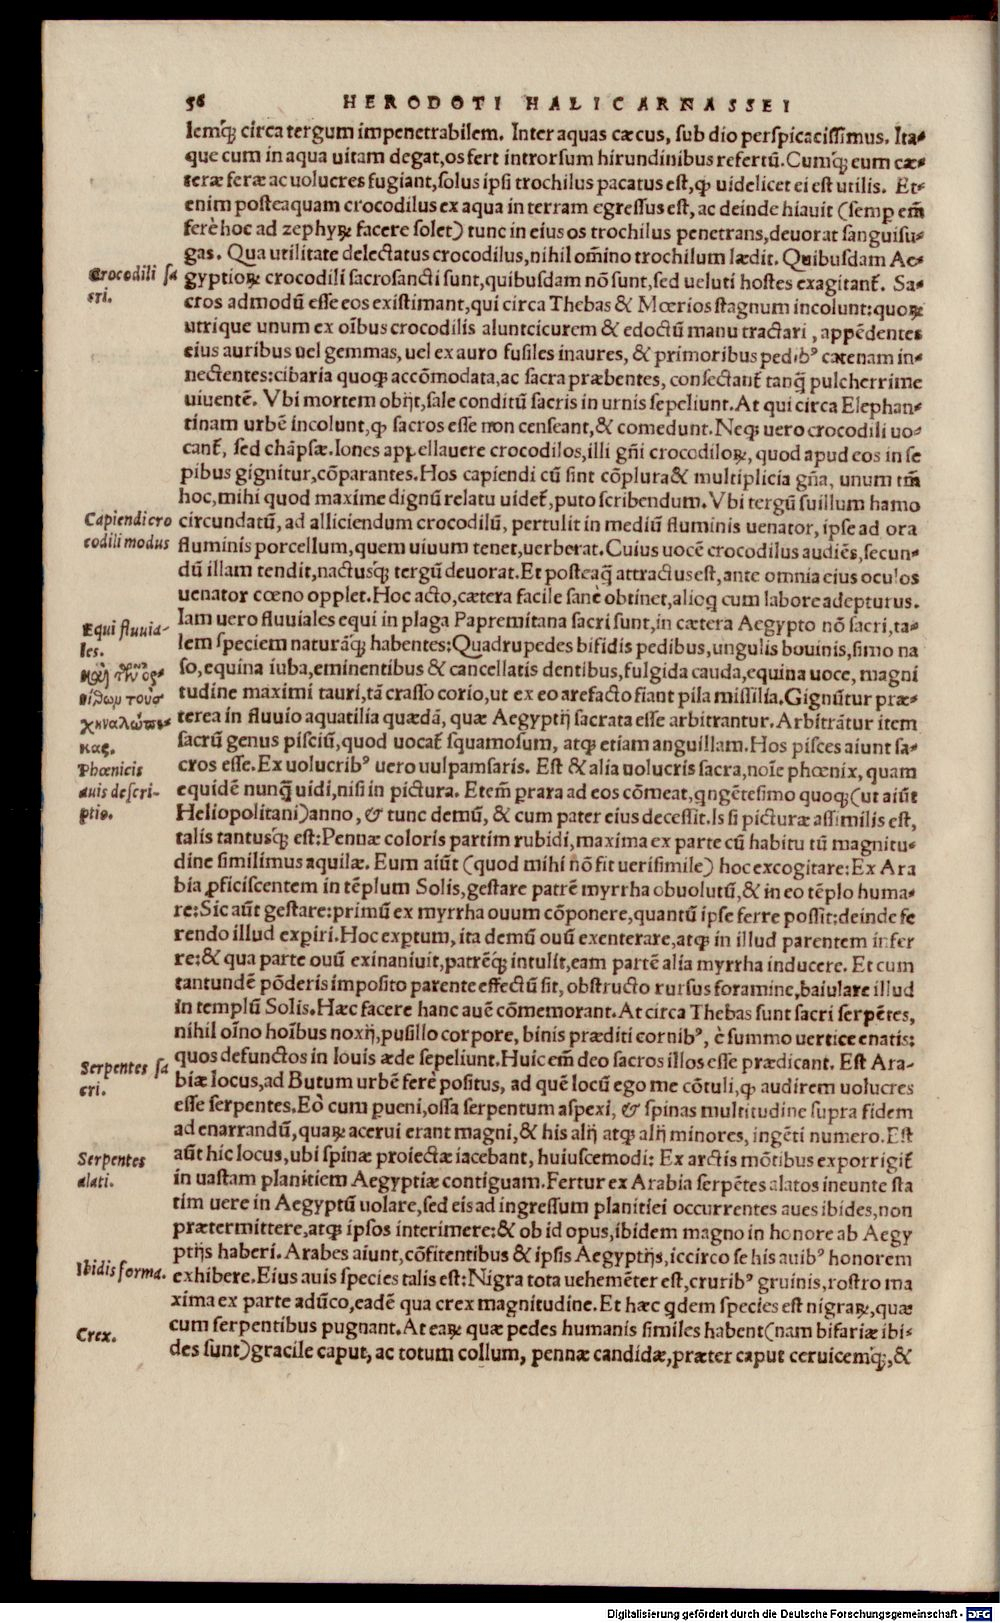 56 HERODOTI HALICARNASSEI
lemq́ꝫ circa tergum impenetrabilem. Inter aquas cæcus, sub dio perspicacissimus. Ita-
que cum in aqua uitam degat, os fert introrsum hirundinibus refertū. Cumq́ꝫ eum cæ-
teræ feræ ac uolucres fugiant, solus ipsi trochilus pacatus est, ꝙ uidelicet ei est utilis. Et-
enim posteaquam crocodilus ex aqua in terram egressus est, ac deinde hiauit (semp em̄
ferè hoc ad zephyrꝝ facere solet) tunc in eius os trochilus penetrans, deuorat sanguisu-
gas. Qua utilitate delectatus crocodilus, nihil om̄ino trochilum lædit. Quibusdam Ae-
Crocodili sa
cri.
gyptioꝝ crocodili sacrosancti sunt, quibusdam nō sunt, sed ueluti hostes exagitant̄. Sa-
cros admodū esse eos existimant, qui circa Thebas & Mœrios stagnum incolunt: quoꝝ
utrique unum ex oībus crocodilis alunt cicurem & edoctū manu tractari, appēdentes
eius auribus uel gemmas, uel ex auro fusiles inaures, & primoribus pedibꝰ catenam in-
nectentes: cibaria quoqꝫ accōmodata, ac sacra præbentes, consectant̄ tanq̄ pulcherrime
uiuentē. Vbi mortem obijt, sale conditū sacris in urnis sepeliunt. At qui circa Elephan-
tinam urbē incolunt, ꝙ sacros esse non censeant, & comedunt. Neqꝫ uero crocodili uo-
cant̄, sed chāpsæ. Iones appellauere crocodilos, illi gn̄i crocodiloꝝ, quod apud eos in se
pibus gignitur, cōparantes. Hos capiendi cū sint cōplura & multiplicia gn̄a, unum tm̄
hoc, mihi quod maxime dignū relatu uidet̄, puto scribendum. Vbi tergū suillum hamo
Capiendi cro
codili modus
circundatū, ad alliciendum crocodilū, pertulit in mediū fluminis uenator, ipse ad ora
fluminis porcellum, quem uiuum tenet, uerberat. Cuius uocē crocodilus audiēs, secun-
dū illam tendit, nactusq́ꝫ tergū deuorat. Et posteaq̄ attractus est, ante omnia eius oculos
uenator cœno opplet. Hoc acto, cætera facile sanè obtinet, alioq cum labore adepturus.
Equi fluuia-
les.
Iam uero fluuiales equi in plaga Papremitana sacri sunt, in cætera Aegypto nō sacri, ta-
lem speciem naturāq́ꝫ habentes: Quadrupedes bifidis pedibus, ungulis bouinis, simo na
so, equina iuba, eminentibus & cancellatis dentibus, fulgida cauda, equina uoce, magni
tudine maximi tauri, tā crasso corio, ut ex eo arefacto fiant pila missilia. Gignūtur præ-
χηναλώπε-
κας.
terea in fluuio aquatilia quædā, quæ Aegyptij sacrata esse arbitrantur. Arbitrātur item
sacrū genus pisciū, quod uocat̄ squamosum, atqꝫ etiam anguillam. Hos pisces aiunt sa-
Phœnicis
auis descri-
ptio.
cros esse. Ex uolucribꝰ uero uulpamsaris. Est & alia uolucris sacra, noīe phœnix, quam
equidē nunq̄ uidi, nisi in pictura. Etem̄ prara ad eos cōmeat, qngētesimo quoqꝫ (ut aiūt
Heliopolitani) anno, & tunc demū, & cum pater eius decessit. Is si picturæ assimilis est,
talis tantusq́ꝫ est: Pennæ coloris partim rubidi, maxima ex parte cū habitu tū magnitu-
dine similimus aquilæ. Eum aiūt (quod mihi nō fit uerisimile) hoc excogitare: Ex Ara
bia ꝓficiscentem in tēplum Solis, gestare patrē myrrha obuolutū, & in eo tēplo huma-
re: Sic aūt gestare: primū ex myrrha ouum cōponere, quantū ipse ferre possit: deinde fe
rendo illud experiri. Hoc expertum, ita demū ouū exenterare, atqꝫ in illud parentem infer
re: & qua parte ouū exinaniuit, patrēq́ꝫ intulit, eam partē alia myrrha inducere. Et cum
tantundē pōderis imposito parente effectū sit, obstructo rursus foramine, baiulare illud
in templū Solis. Hæc facere hanc auē cōmemorant. At circa Thebas sunt sacri serpētes,
nihil oīno hoībus noxij, pusillo corpore, binis præditi cornibꝰ, è summo uertice enatis:
Serpentes sa
cri.
quos defunctos in Iouis æde sepeliunt. Huic em̄ deo sacros illos esse prædicant. Est Ara-
biæ locus, ad Butum urbē ferè positus, ad quē locū ego me cōtuli, ꝙ audirem uolucres
esse serpentes. Eò cum pueni, ossa serpentum aspexi, & spinas multitudine supra fidem
ad enarrandū, quaꝝ acerui erant magni, & his alij atqꝫ alij minores, ingēti numero. Est
Serpentes
alati.
aūt hic locus, ubi spinæ proiectæ iacebant, huiuscemodi: Ex arctis mōtibus exporrigit̄
in uastam planitiem Aegyptiæ contiguam. Fertur ex Arabia serpētes alatos ineunte sta
tim uere in Aegyptū uolare, sed eis ad ingressum planitiei occurrentes aues ibides, non
prætermittere, atqꝫ ipsos interimere: & ob id opus, ibidem magno in honore ab Aegy
ptijs haberi. Arabes aiunt, cōfitentibus & ipsis Aegyptijs, iccirco se his auibꝰ honorem
Ibidis forma.
exhibere. Eius auis species talis est: Nigra tota uehemēter est, cruribꝰ gruinis, rostro ma
xima ex parte adūco, eadē qua crex magnitudine. Et hæc qdem species est nigraꝝ, quæ
Crex.
cum serpentibus pugnant. At eaꝝ quæ pedes humanis similes habent (nam bifariæ ibi-
des sunt) gracile caput, ac totum collum, pennæ candidæ, præter caput ceruicemq́ꝫ, &
Digitalisierung gefördert durch die Deutsche Forschungsgemeinschaft - DFG